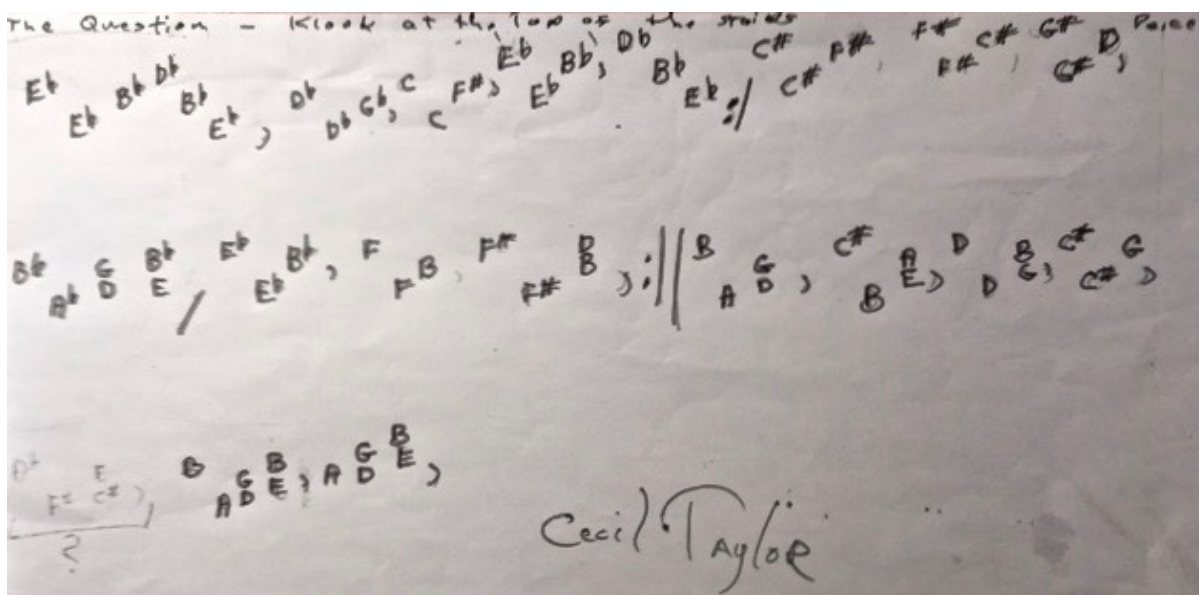 The Question - Klook at the Top of the stairs
Eb Eb Bb Db Bb Eb, Db Db Gb, C C F#, Eb Eb Bb, Db Bb Eb :/ C# C# F#, F# F# C#, G# G# D,
Bb Ab G D Bb E / Eb Eb Bb, F F B, F# F# D B, :|| B A G D, C# B A E, D D B G, C# C# G,
F# E C#, B A G D B E, A G D B E,
?
Cecil Taylor